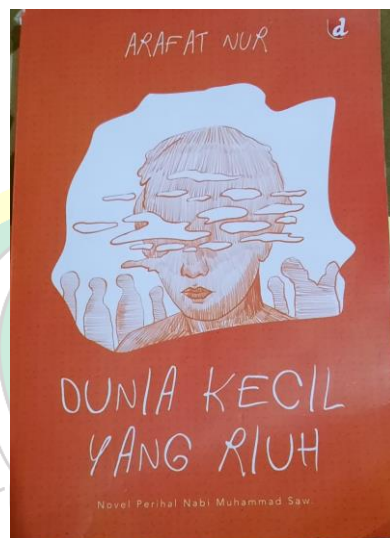 ARAFAT NUR
d
DUNIA KECIL
YANG RIUH
Novel Perihal Nabi Muhammad Saw.